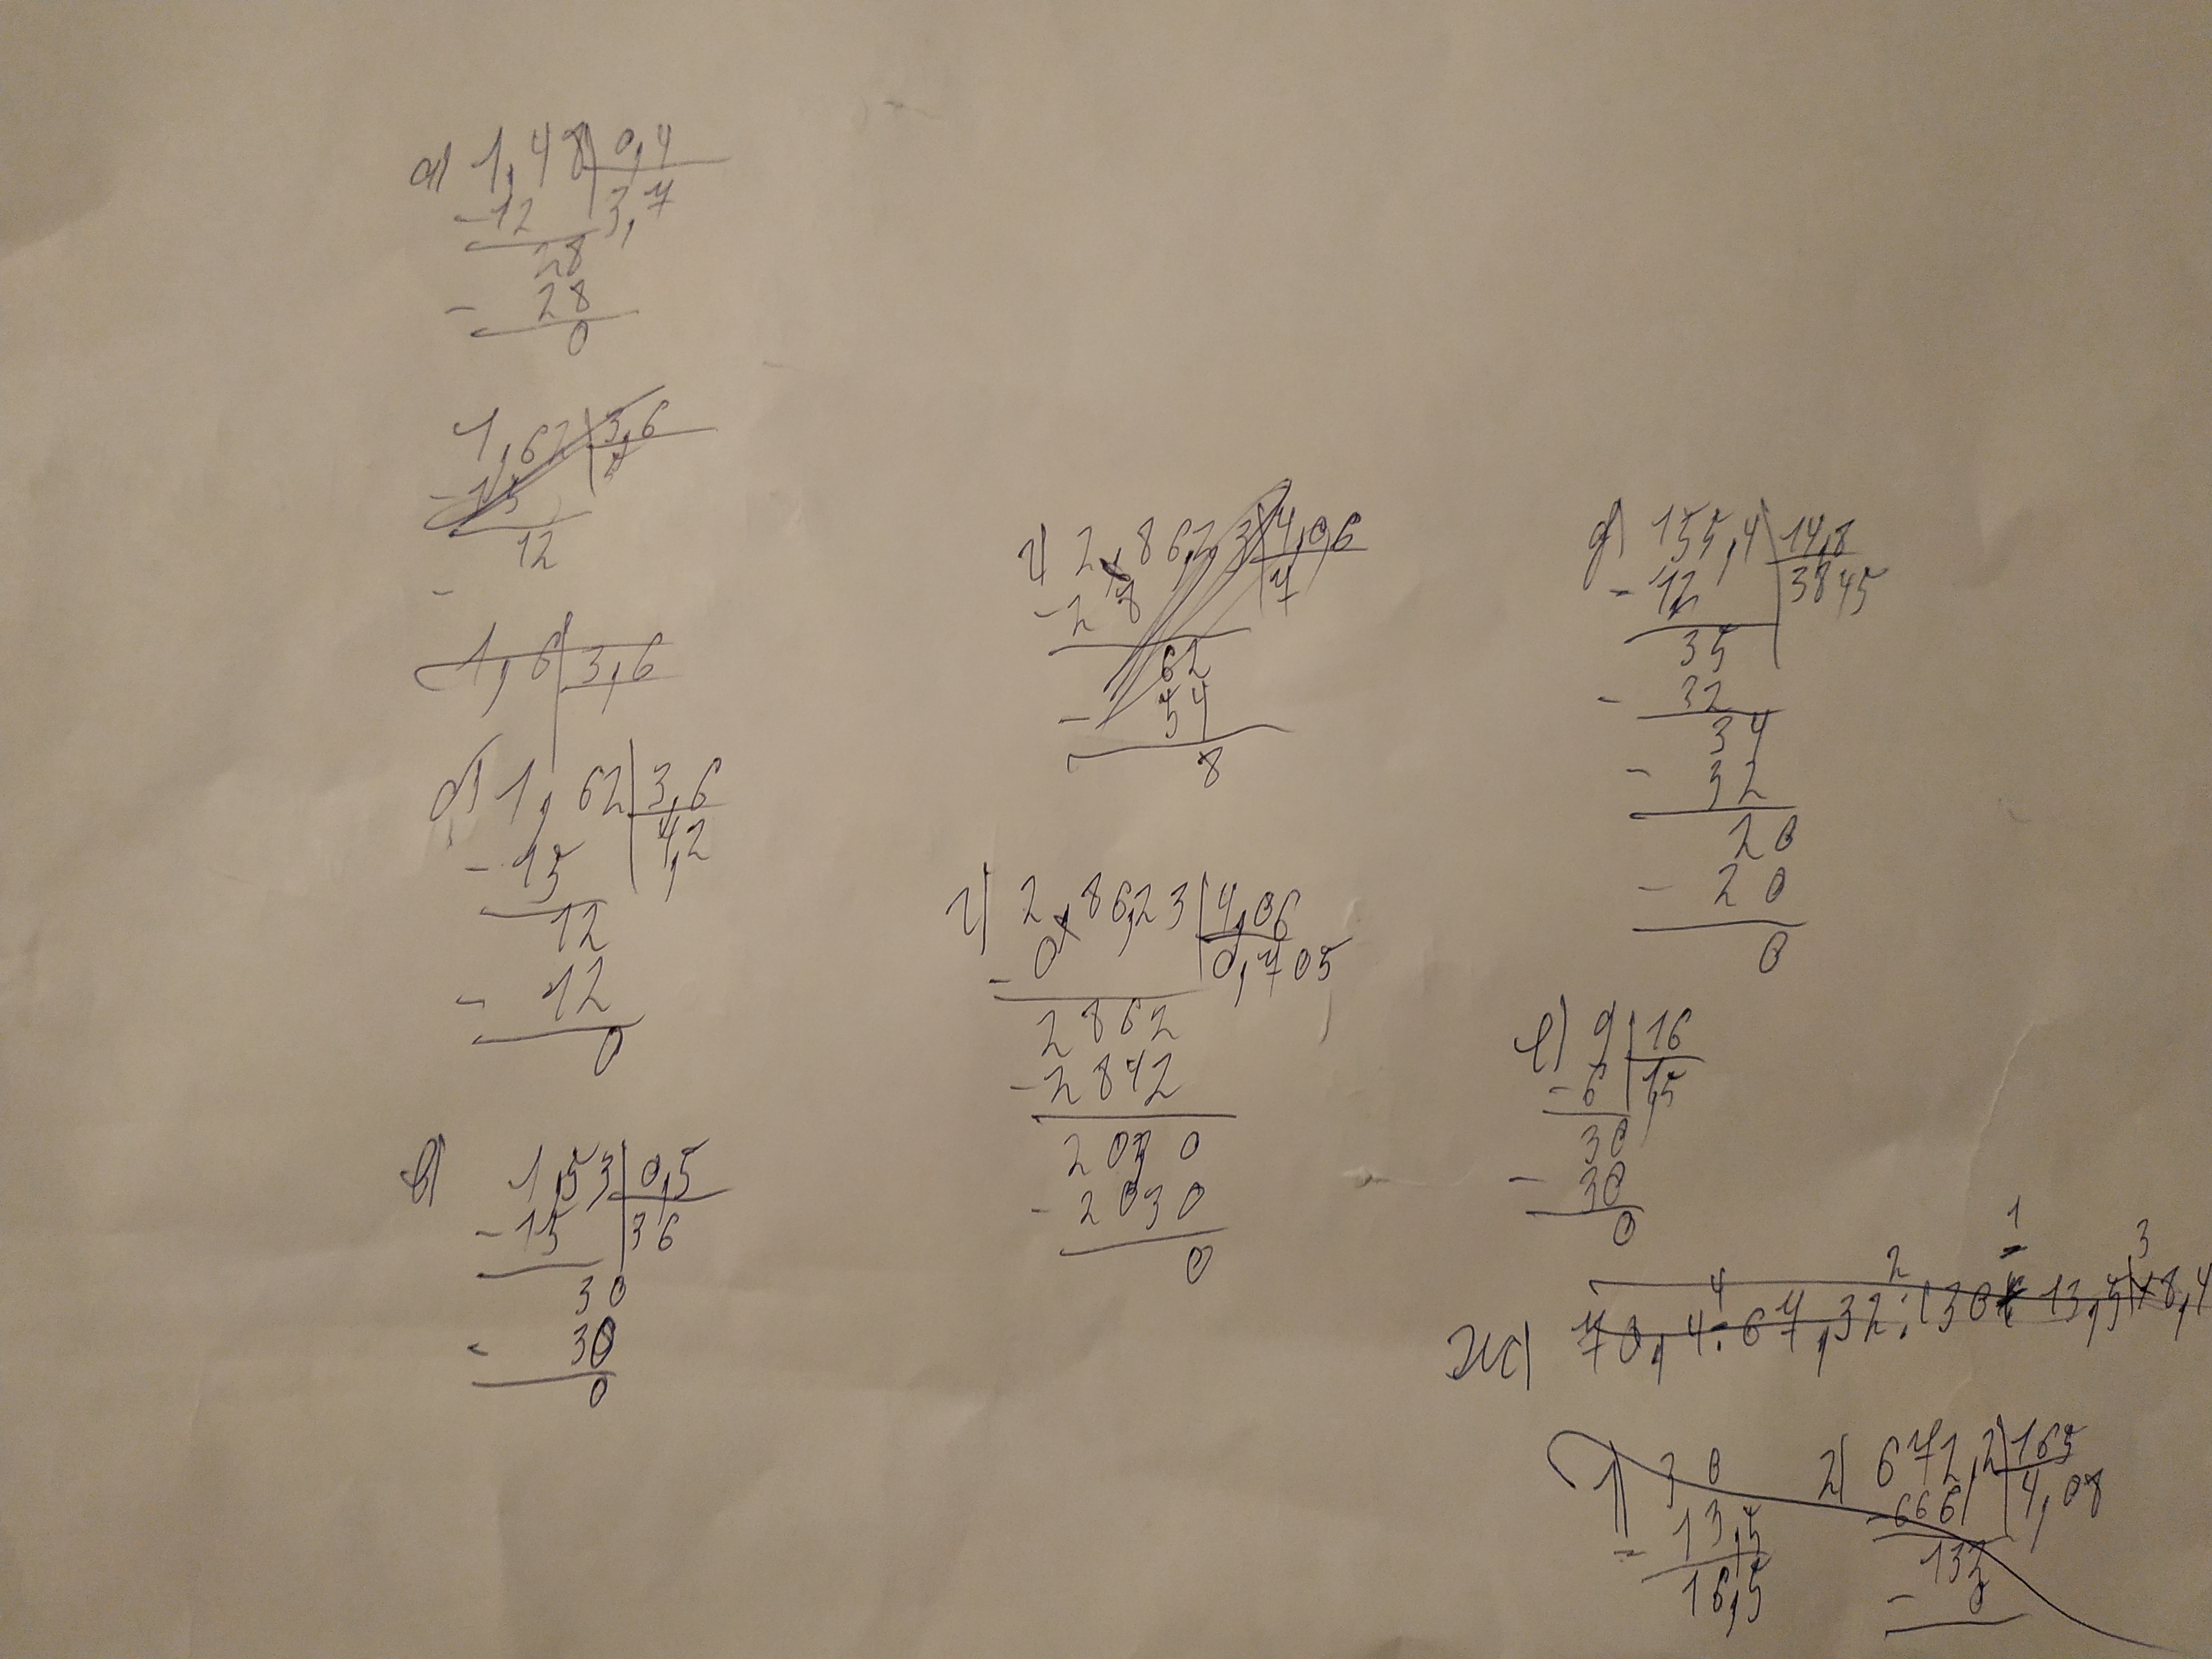 а) 1,48 | 0,4
- 12 3,7
28
- 28
0
1,62 | 3,6
12
-
1,6 | 3,6
б) 1,62 | 3,6
- 15 4,2
12
- 12
0
в) 1,53 | 0,5
- 15 36
30
- 30
0
г) 2 862,3 | 4,06
- 2 8 7
62
- 54
8
г) 2 86,23 | 4,06
- 0 0,705
2862
- 2842
2030
- 2030
0
д) 155,4 | 14,8
- 12 3845
35
- 32
34
- 32
20
- 20
0
е) 9 | 16
- 6 1,5
30
- 30
0
4 2 1 3
ж) 70,4:67,32:(30-13,5)+8,4
1) 30
- 13,5
16,5
2) 672,2 | 165
- 666 4,08
-